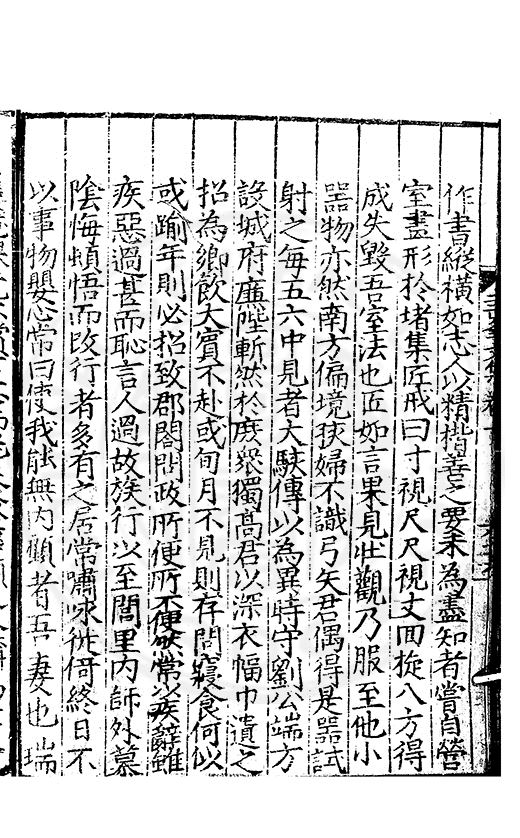 作書縱橫如志人以精楷善之要未為盡知者嘗自營
室畫形於堵集匠戒曰寸視尺尺視丈回旋八方得
成失毀吾室法也匠如言果見壯觀乃服至他小
器物亦然南方偏境狹婦不識弓矢君偶得是器試
射之每五六中見者大駭傳以為異時守劉公端方
設城府廉陛斬然於庶裂獨高君以深衣幅巾遺之
招為鄉飲大賓不赴或旬月不見則存問寢食何似
或踰年則必招致郡閣問政所便所不便然常以疾辭雖
疾惡過甚而恥言人過故族行以至閭里內師外慕
陰悔頓悟而改行者多有之居常嘯咏徙倚終日不
以事物嬰心常曰使我能無內顧者吾妻也瑞